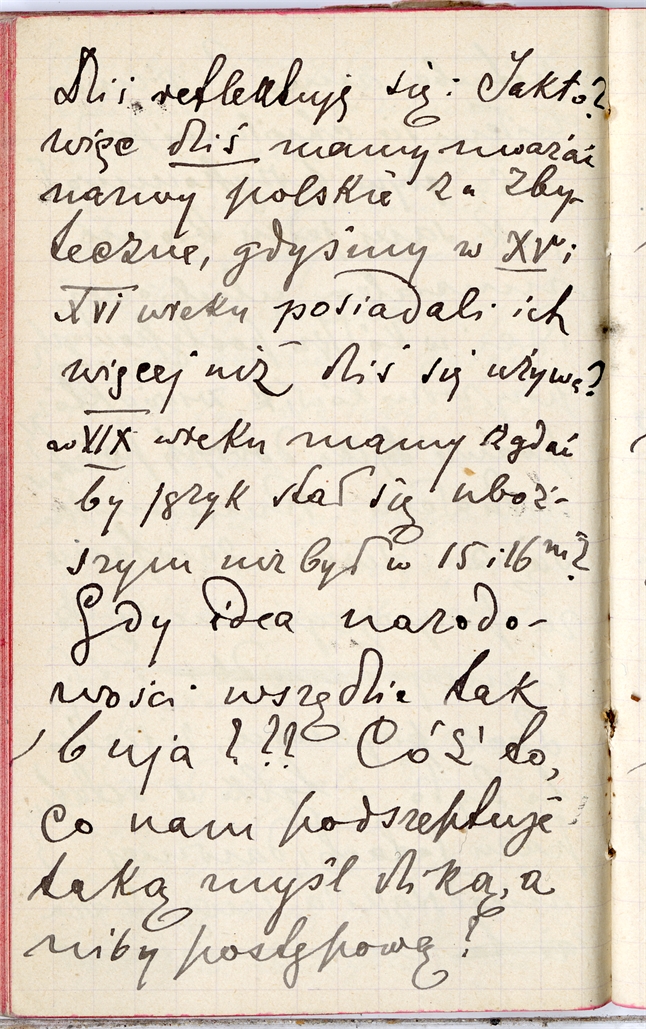 Dziś reflektuję się: Jakto?
więc dziś mamy uważać
nazwy polskie za zby-
teczne, gdyśmy w XV i
XVI wieku posiadali ich
więcej niż dziś się używa?
w XIX wieku mamy żądać
by język stał się uboż-
szym niż był w 15 i 16 m?
Gdy idea narodo-
wości wszędzie tak
buja ??? Cóż to,
co nam podszeptuje
taką myśl dziką, a
niby postępową?